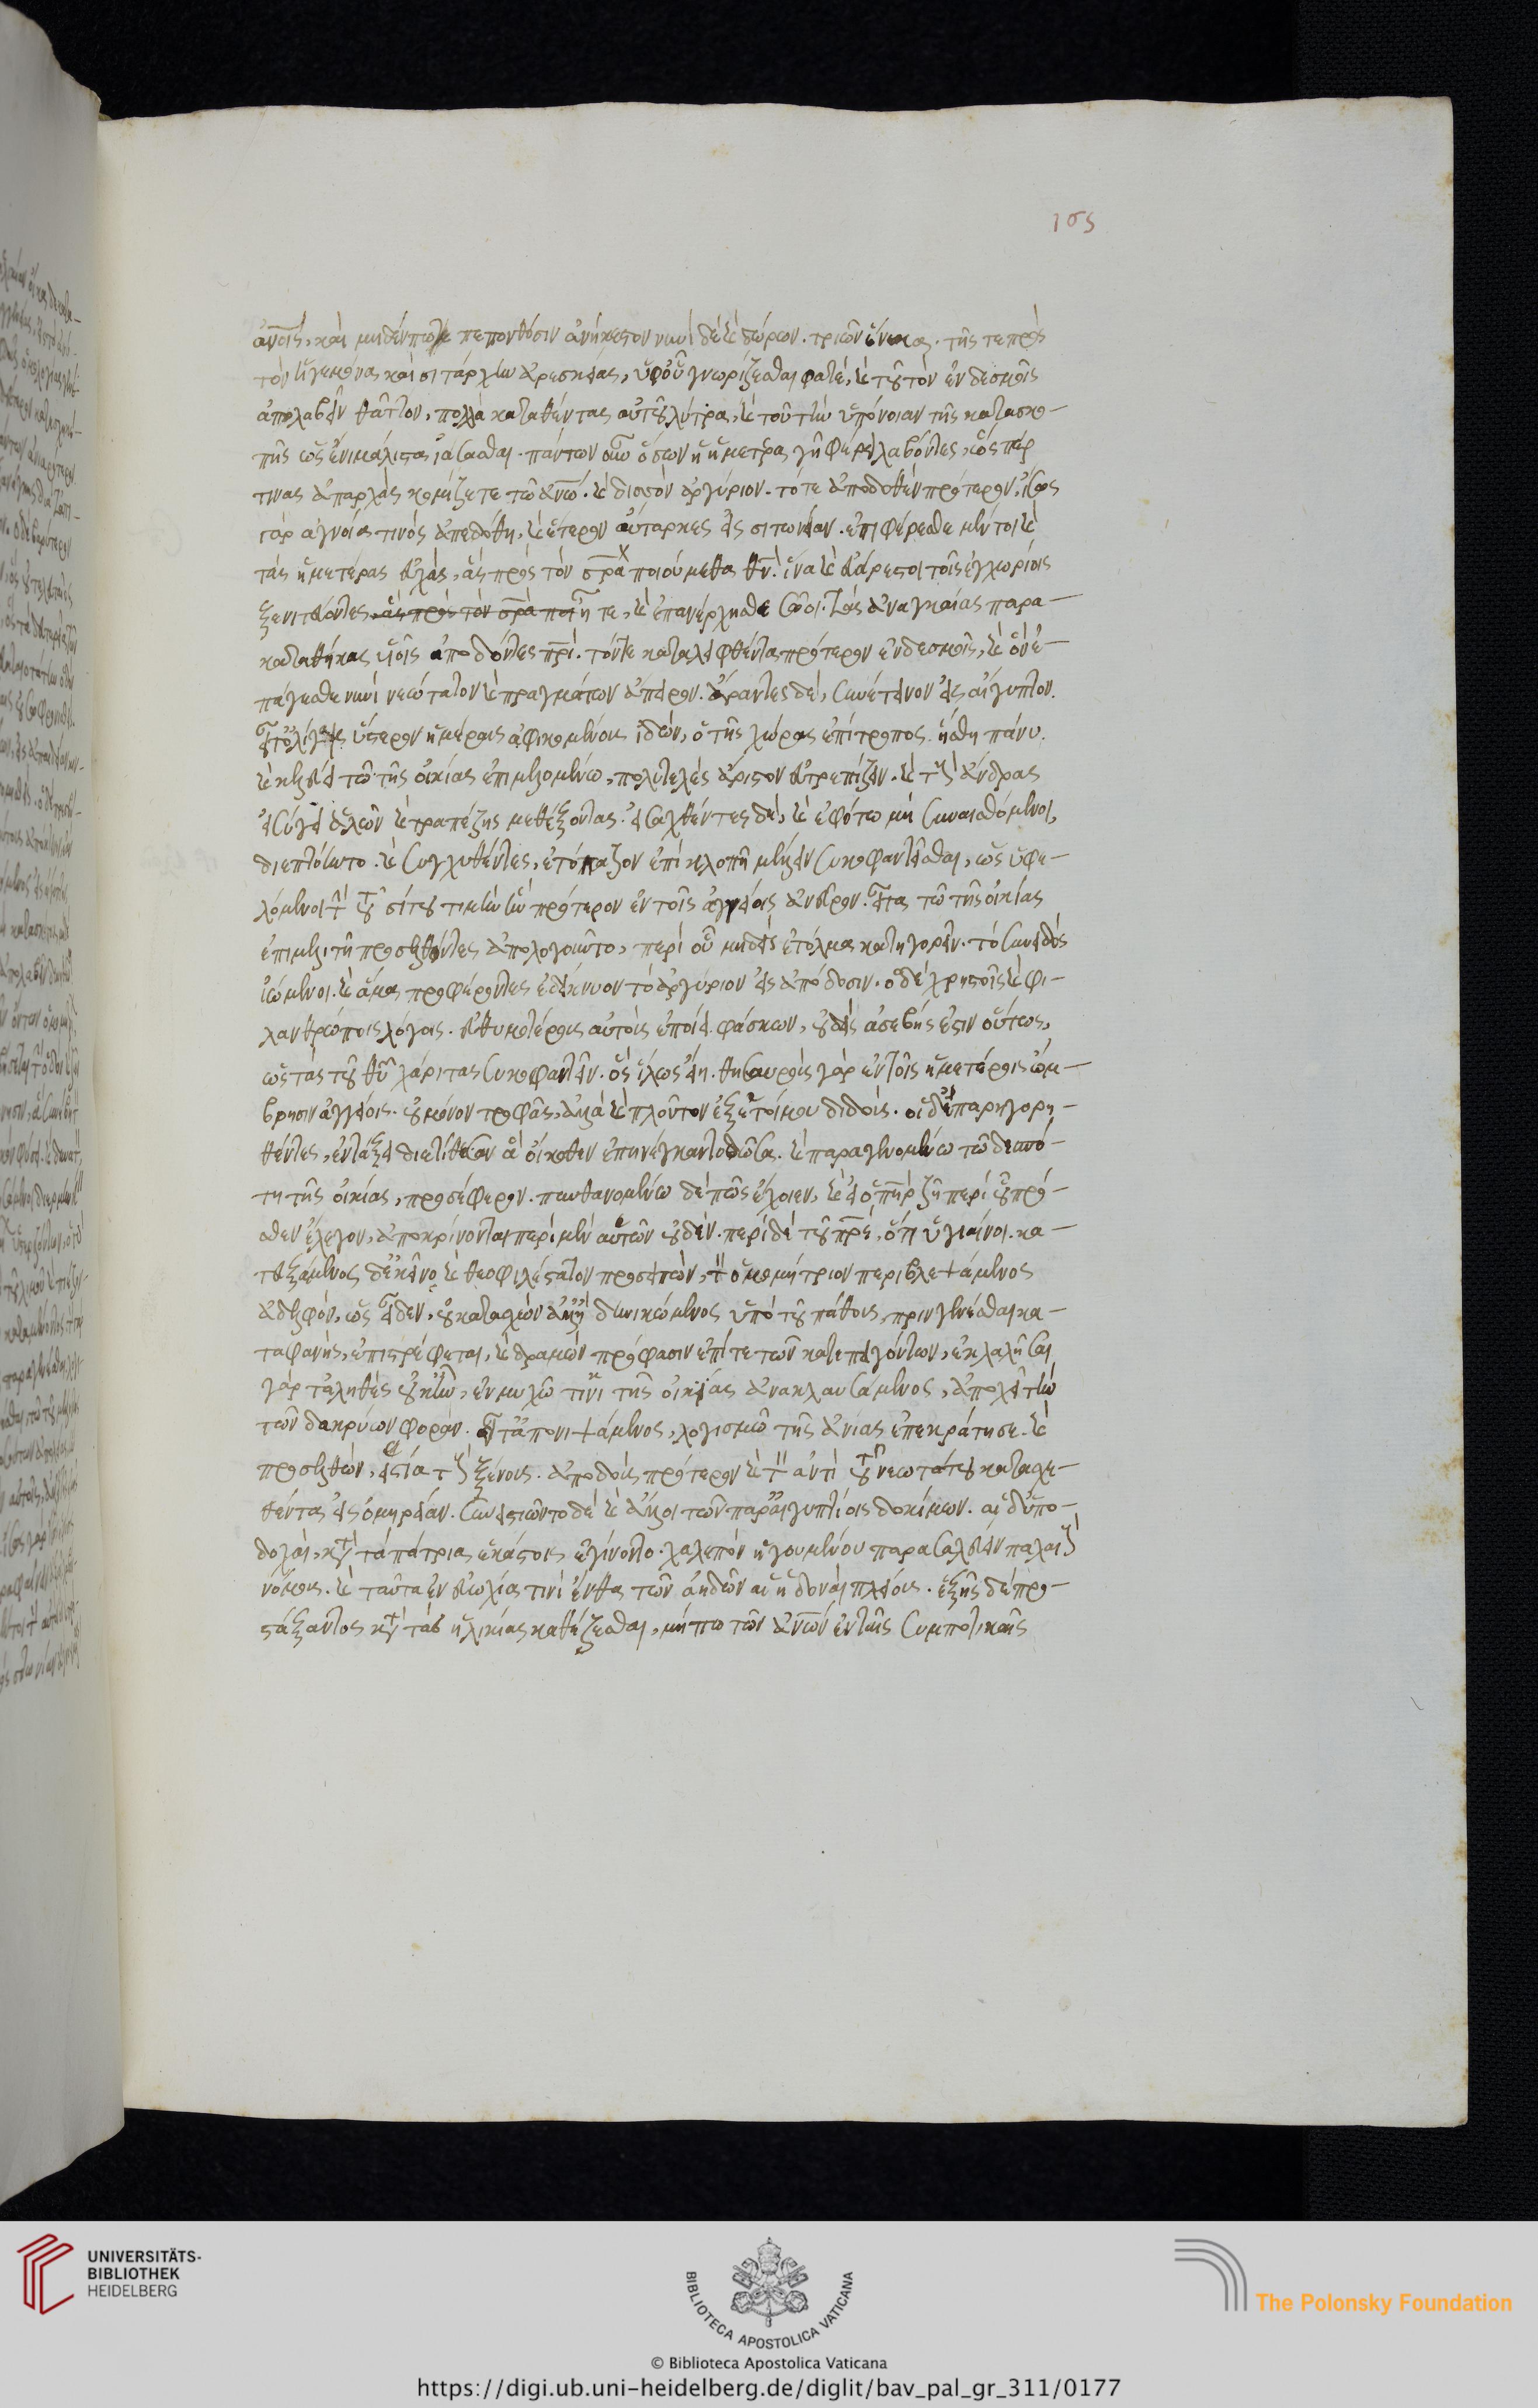 ἀνοις, καὶ μηδέν πω πεπονθόσιν ἀνήκεστον νυνὶ δὲ καὶ δώρων. τριῶν ἕνεκα. τῆς τε πρὸς
τὸν ἡγεμόνα καὶ σιτάρχην ἀρεσκείας, ὑφ' οὗ γνωρίζεσθαι φατέ, καὶ τοῦ τὸν ἐν δεσμοῖς
ἀπολαβεῖν θᾶττον, πολλὰ καταθέντας αὐτοῦ λύτρα, καὶ τοῦ τὴν ὑπόνοιαν τῆς κατασκο-
πῆς ὡς ἔνι μάλιστα ἰάσασθαι. πάντων οὖν ὅσων ἡ ἡμετέρα γῆ φέρει λαβόντες, ὥς περ
τινας ἀπαρχὰς κομίζετε τῶ ἀνω. καὶ δισσὸν ἀργύριον. τό τε ἀποδοθὲν πρότερον, ἴσως
γὰρ ἀγνοία τινὸς ἀπεδόθη, καὶ ἕτερον αὔταρκες εἰς σιτωνείαν. ἐπιφέρεσθε μέντοι καὶ
τὰς ἡμετέρας εὐχὰς, ἃς πρὸς τὸν σρα ποιούμεθα θν. ἵνα καὶ εὐάρεστοι τοῖς ἐγχωρίοις
ξενιτεύοντες, ἃς πρὸς τὸν σρα ποι ἦτε, καὶ ἐπανέρχησθε σῶοι. τὰς ἀναγκαίας παρα-
καταθήκας υἱοὺς ἀποδόντες πρι. τόν τε καταλειφθέντα πρότερον ἐν δεσμοῖς, καὶ ὃν ἐ-
πάγεσθε νυνὶ νεώτατον καὶ πραγμάτων ἄπειρον. ἄραντες δὲ, συνέτεινον εἰς αἴγυπτον.
εἶτ' ὀλίγαις ὕστερον ἡμέραις ἀφικομένους ἰδὼν, ὁ τῆς χώρας ἐπίτροπος. ἥσθη πάνυ.
καὶ κελεύει τῶ τῆς οἰκίας ἐπιμελομένω, πολυτελὲς ἄριστον εὐτρεπίζειν. καὶ τοὺς ἄνδρας
εἰσάγειν ἁλῶν καὶ τραπέζης μεθέξοντας. εἰσαχθέντες δὲ, καὶ ἐφ' ὅτω μὴ συναισθόμενοι,
διεπτόηντο. καὶ συγχυθέντες, ἐτόπαζον ἐπὶ κλοπῆ μέλλειν συκοφαντεῖσθαι, ὡς ὑφε-
λόμενοι τὴν τοῦ σίτου τιμὴν ἣν πρότερον ἐν τοῖς ἀγγείοις ἀνεῦρον. εἶτα τῶ τῆς οἰκίας
ἐπιμελητῆ προσελθόντες ἀπολογοῦντο, περὶ οὗ μηδεὶς ἐτόλμα κατηγορεῖν. τὸ συνειδὸς
ἰώμενοι. καὶ ἅμα προφέροντες ἐδείκνυον τὸ ἀργύριον εἰς ἀπόδοσιν. ὁ δὲ χρηστοῖς καὶ φι-
λανθρώποις λόγοις. εὐθυμοτέρους αὐτοὺς ἐποίει φάσκων, οὐδεὶς ἀσεβής ἐστιν οὕτως,
ὡς τὰς τοῦ θῦ χάριτας συκοφαντεῖν. ὃς ἵλεως εἴη. θησαυροὺς γὰρ ἐν τοῖς ἡμετέροις ὤμ-
βρησιν ἀγγείοις. οὐ μόνον τροφὰς, ἀλλὰ καὶ πλοῦτον ἐξ ἑτοίμου διδούς. οἱ δὲ παρηγορη-
θέντες, ἐν τάξει διετίθεσαν ἃ οἴκοθεν ἐπηνέγκαντο δῶρα. καὶ παραγενομένω τῶ δεσπό-
τη τῆς οἰκίας, προσέφερον. πυνθανομένω δὲ πῶς ἔχοιεν, καὶ εἰ ὁ πηρ ζῆ περὶ οὗ πρό-
σθεν ἔλεγον, ἀποκρίνονται περὶ μὲν αὑτῶν οὐδέν. περὶ δὲ τοῦ πρς, ὅτι ὑγιαίνοι. κα-
τευξάμενος δ' ἐκείνω καὶ θεοφιλέστατον προσειπὼν, τὸν ὁμομήτριον περιβλεψάμενος
ἀδελφὸν, ὡς εἶδεν, οὐ κατασχὼν ἀλλ' ἤδη νικώμενος ὑπὸ τοῦ πάθους, πρὶν γενέσθαι κα-
ταφανὴς, ἐπιστρέφεται, καὶ δραμὼν πρόφασιν ἐπί τε τῶν κατεπειγόντων, ἐκλαλῆσαι
γὰρ τἀληθὲς οὐκ ἦν, ἐν μυχῶ τινι τῆς οἰκίας ἀνακλαυσάμενος, ἀποχεῖ τὴν
τῶν δακρύων φορὰν. εἶτ' ἀπονιψάμενος, λογισμῶ τῆς ἀνίας ἐπεκράτησε. καὶ
προσελθὼν, εἱστία τοὺς ξένους. ἀποδοὺς πρότερον καὶ τὸν ἀντὶ τοῦ νεωτάτου κατασχε-
θέντα εἰς ὁμηρείαν. συνειστιῶντο δὲ καὶ ἄλλοι τῶν παρ' αἰγυπτίοις δοκίμων. αἱ δ' ὑπο-
δοχαὶ, κατὰ τὰ πάτρια ἑκάστοις ἐγίνοντο. χαλεπὸν ἡγουμένου παρασαλεύειν παλαιοὺς
νόμους. καὶ ταῦτα ἐν εὐωχία τινὶ ἔνθα τῶν ἀηδῶν αἱ ἡδοναὶ πλείους. ἑξῆς δὲ προ-
στάξαντος κατὰ τὰς ἡλικίας καθέζεσθαι, μήπω τῶν ἀνων ἐν ταῖς συμποτικαῖς
UNIVERSITÄTS-
BIBLIOTHEK
HEIDELBERG
BIBLIOTECA APOSTOLICA VATICANA
The Polonsky Foundation
© Biblioteca Apostolica Vaticana
https://digi.ub.uni-heidelberg.de/diglit/bav_pal_gr_311/0177